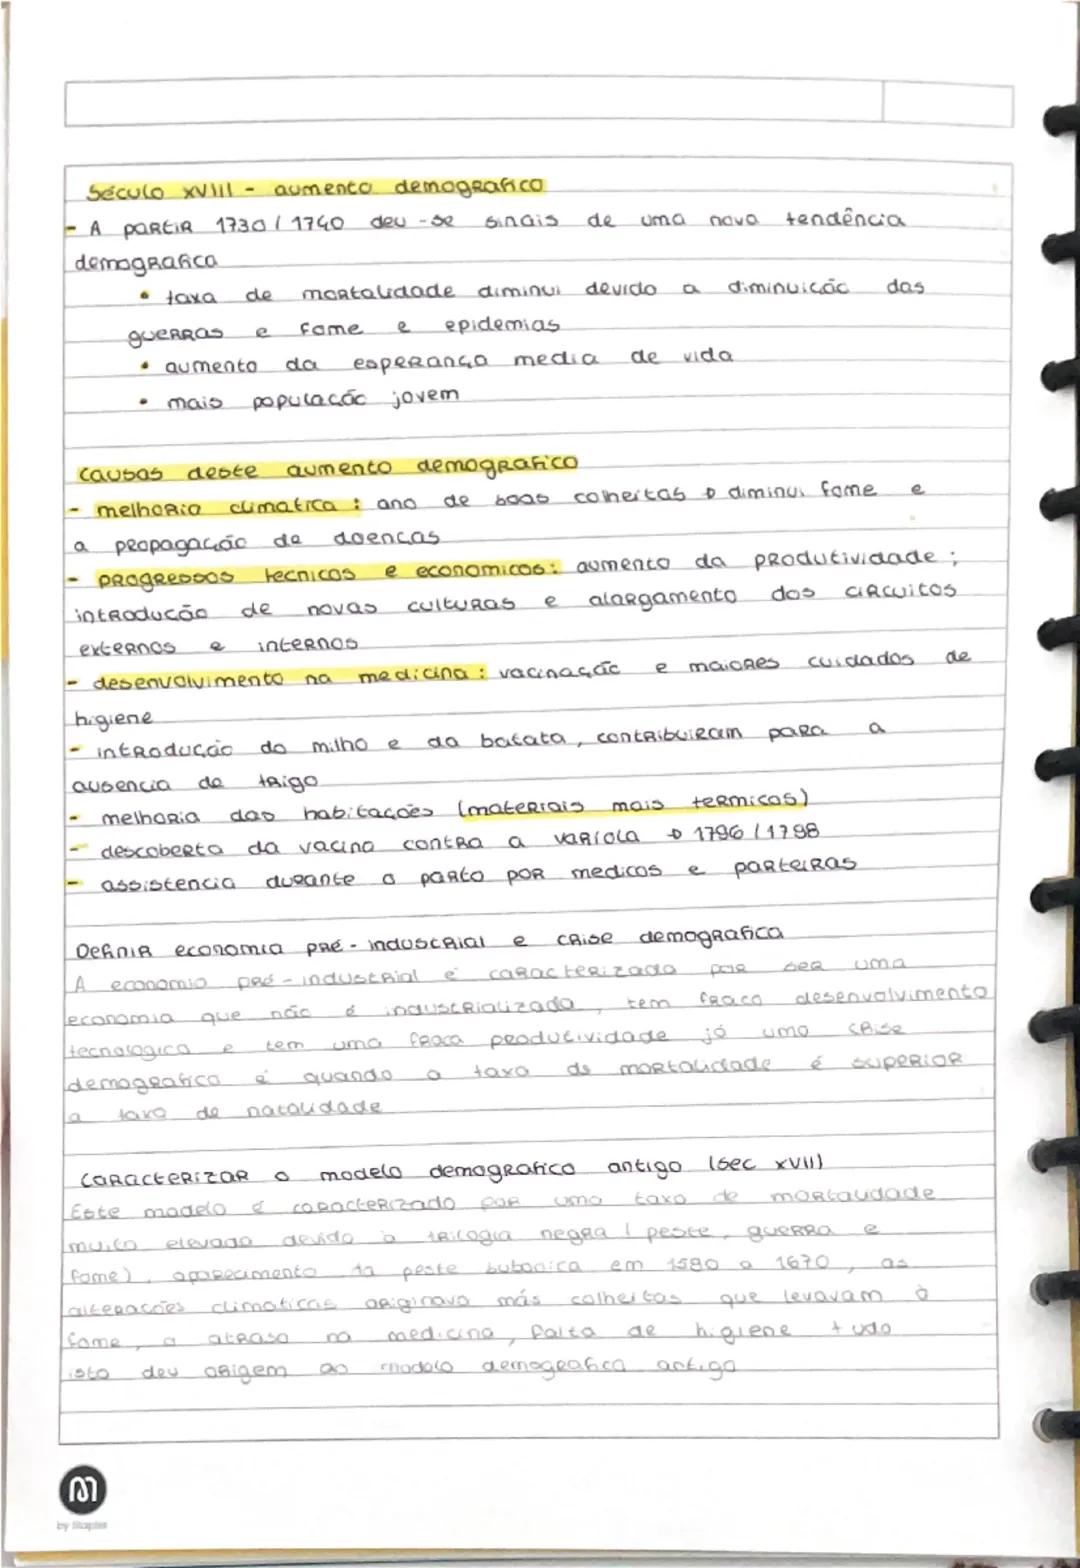 Século XVIII - aumento demografico
- A partir 1730 / 1740 deu-se sinais de uma nova tendência
demografica
• taxa de mortalidade diminui devido a diminuicão das
guerras e fome e epidemias
• aumento da esperança media de vida
• mais populacão jovem
Causas deste aumento demografico
- melhoria climatica : ano de boas colheitas → diminui fome e
a propagação de doencas
- progressos tecnicos e economicos: aumento da produtividade ;
introdução de novas culturas e alargamento dos circuitos
externos e internos
- desenvolvimento na medicina : vacinação e maiores cuidados de
higiene
- introdução do milho e da batata, contribuiram para a
ausencia de trigo
- melhoria das habitações (materiais mais termicos)
- descoberta da vacina contra a varíola → 1796 / 1798
- assistencia durante o parto por medicos e parteiras
Definir economia pré-industrial e crise demografica
A economia pré-industrial é caracterizada por ser uma
economia que não é industrializada, tem fraco desenvolvimento
tecnologico e tem uma fraca produtividade já uma crise
demografica é quando a taxa de mortalidade é superior
a taxa de natalidade
Caracterizar o modelo demografico antigo (sec XVII)
Este modelo é caracterizado por uma taxa de mortalidade
muito elevada devido à trilogia negra (peste, guerra e
fome), aparecimento da peste bubonica em 1580 a 1670, as
alterações climaticas originava más colheitas que levavam à
fome, o atraso na medicina, falta de higiene tudo
isto deu origem ao modelo demografico antigo
by Staples